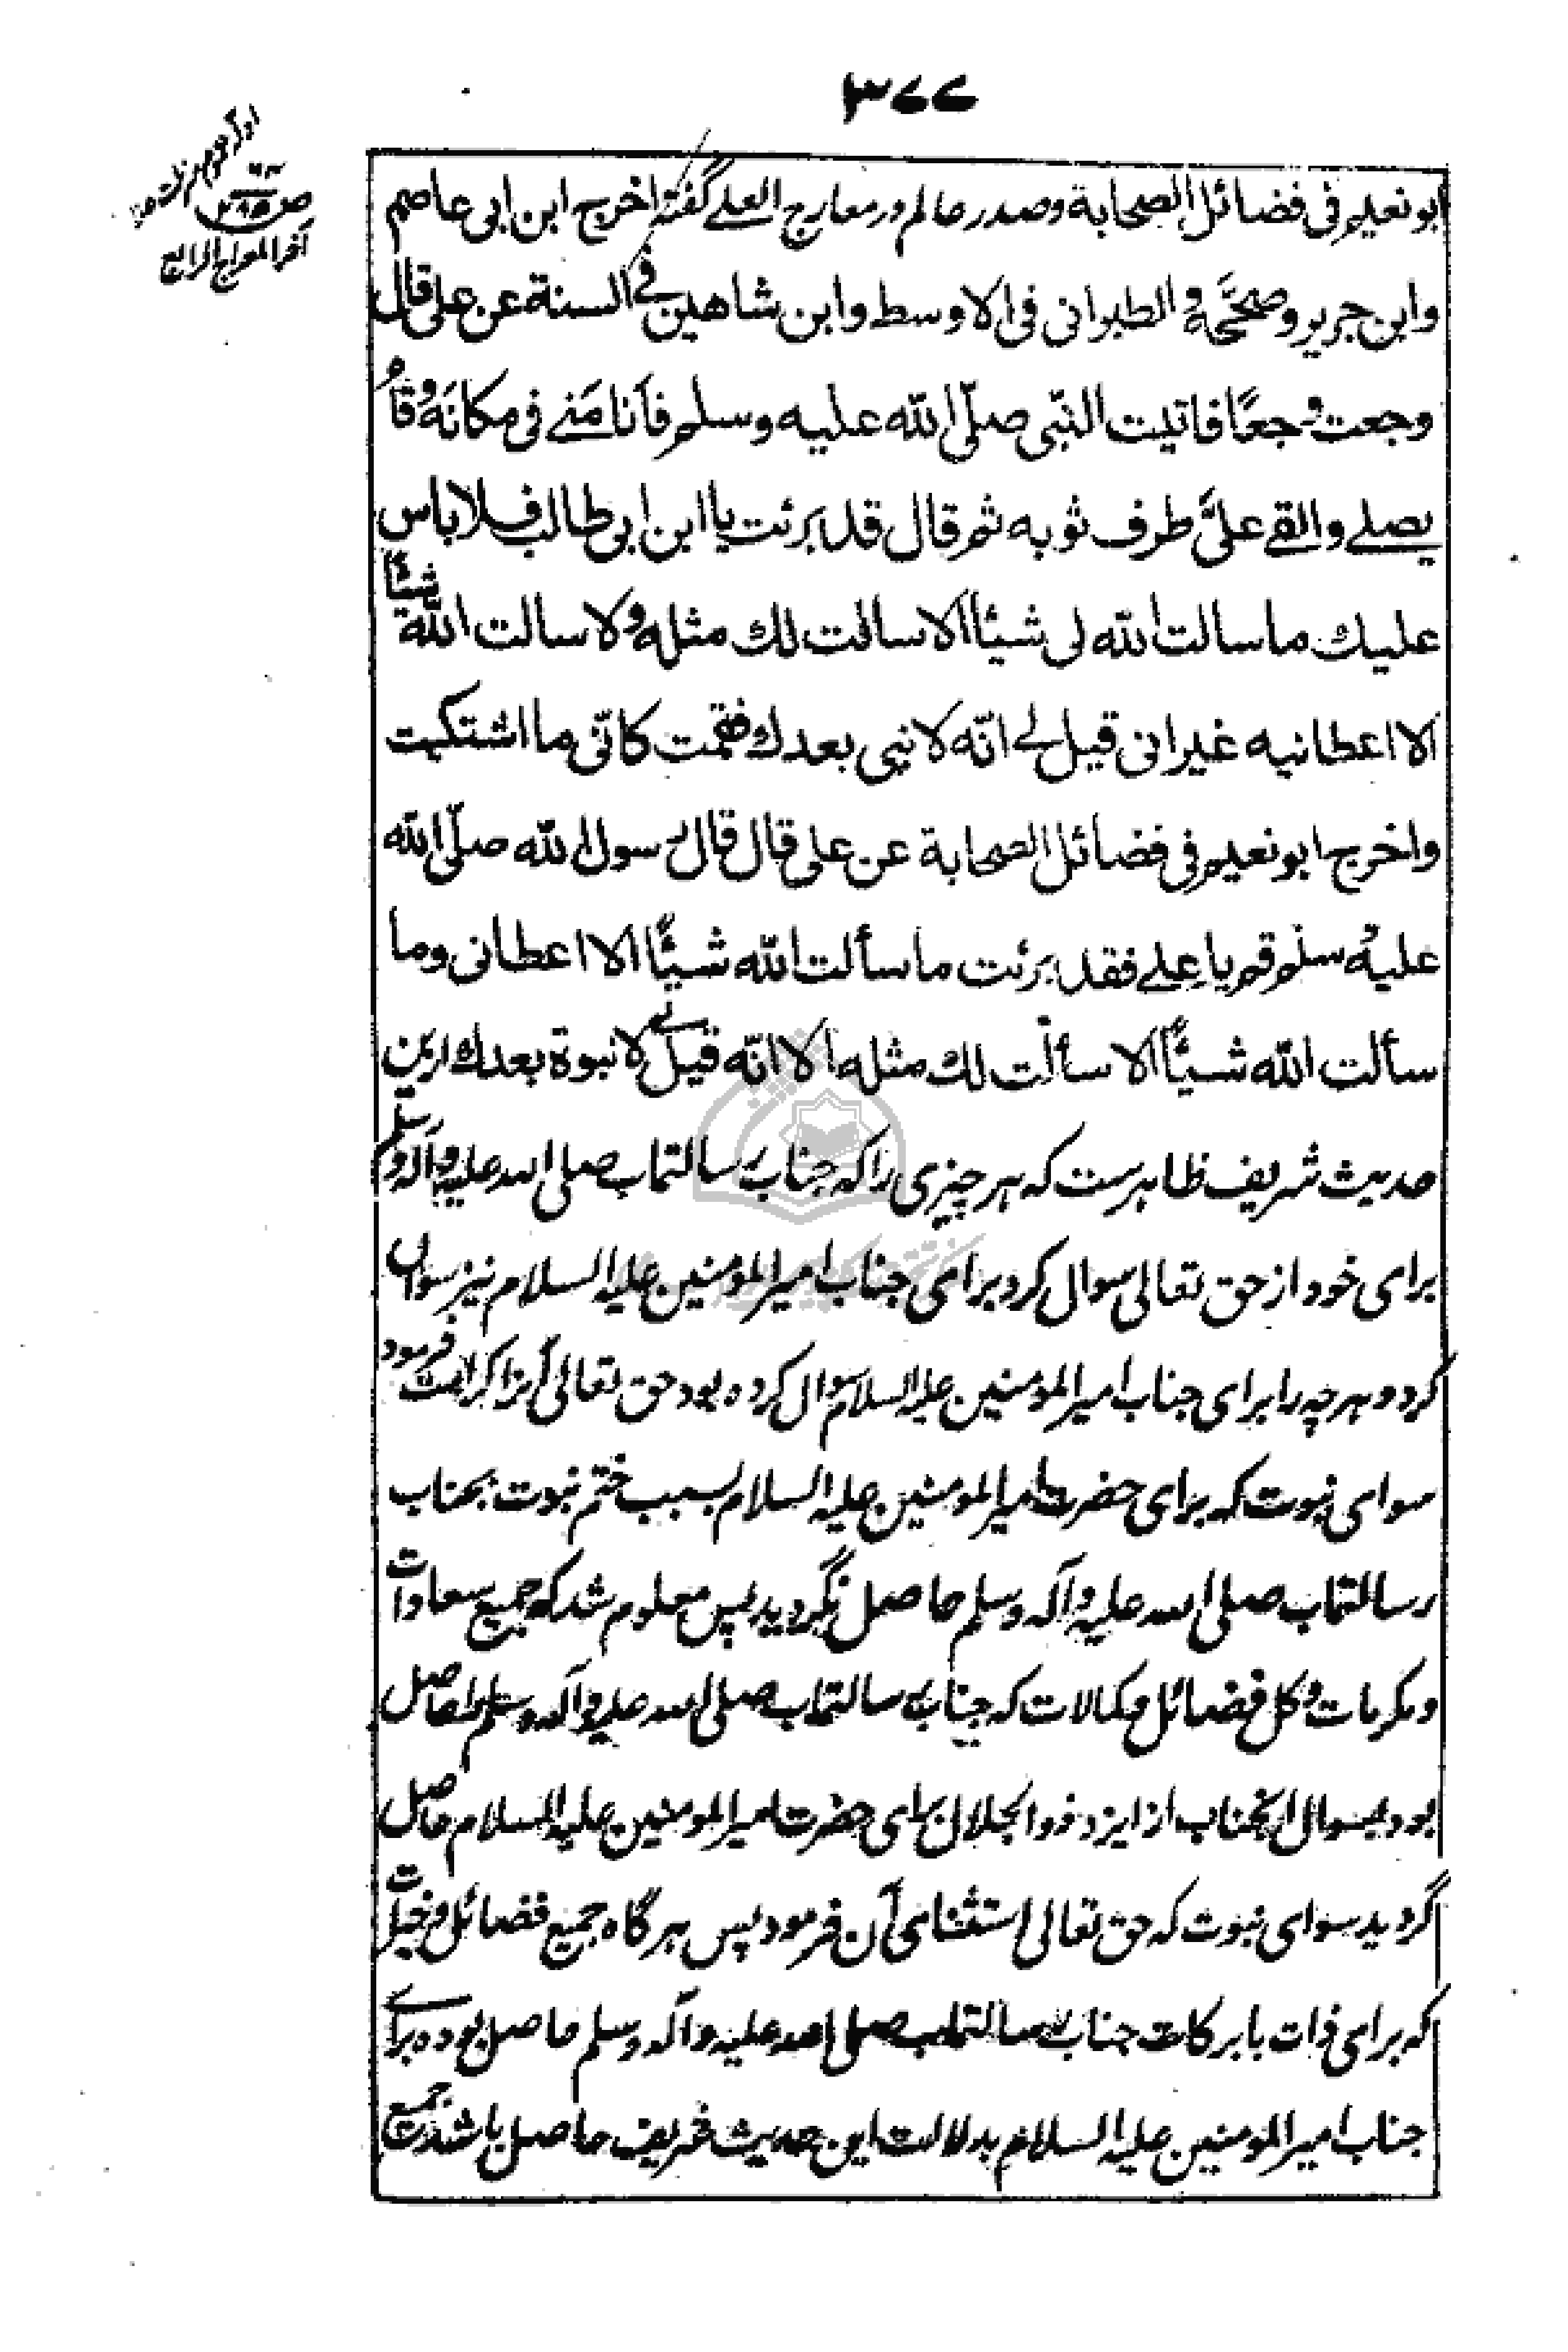 ۳۷۷
ص ۲۸۵
آخر المعراج الرابع
ابو نعيم فی فضائل الصحابة وصدر عالم در معارج العلے گفته اخرج ابن ابی عاصم
وابن جرير وصححه والطبرانی فی الاوسط وابن شاهين فی السنة عن علی قال
وجعت وجعًا فاتيت النّبی صلّی الله عليه وسلم فأنامَنے فی مكانه وقام
يصلے والقے علیَّ طرف ثوبه ثم قال قد برئت يا ابن ابی طالب فلا باس
عليك ما سالت الله لی شيئًا الا سالت لك مثله ولا سالت الله شيئًا
الا اعطانيه غير انی قيل لے انّه لا نبی بعدك فقمت كانّی ما اشتكيت
واخرج ابو نعيم فی فضائل الصحابة عن علی قال قال رسول الله صلّی الله
عليه وسلم قم يا علے فقد برئت ما سألت الله شيئًا الا اعطانی وما
سألت الله شيئًا الا سألت لك مثله الا انّه قيل لے لا نبوة بعدك ازین
حدیث شریف ظاهرست که هر چیزی را که جناب رسالتماب صلی الله علیه وآله وسلم
برای خود از حق تعالی سوال کرد برای جناب امیر المومنین علیه السلام نیز سوال
کرد و هر چه را برای جناب امیر المومنین علیه السلام سوال کرده بود حق تعالی آنرا کرامت فرمود
سوای نبوت که برای حضرت امیر المومنین علیه السلام بسبب ختم نبوت بجناب
رسالتماب صلی الله علیه وآله وسلم حاصل نگردید پس معلوم شد که جمیع سعادات
و مکرمات و کل فضائل و کمالات که جناب رسالتماب صلی الله علیه وآله وسلم را حاصل
بود بسوال آنجناب از ایزد ذو الجلال برای حضرت امیر المومنین علیه السلام حاصل
گردید سوای نبوت که حق تعالی استثنای آن فرمود پس هر گاه جمیع فضائل و خیرات
که برای ذات بابرکات جناب رسالتماب صلی الله علیه وآله وسلم حاصل بوده برای
جناب امیر المومنین علیه السلام بدلالت این حدیث شریف حاصل باشد جمیع